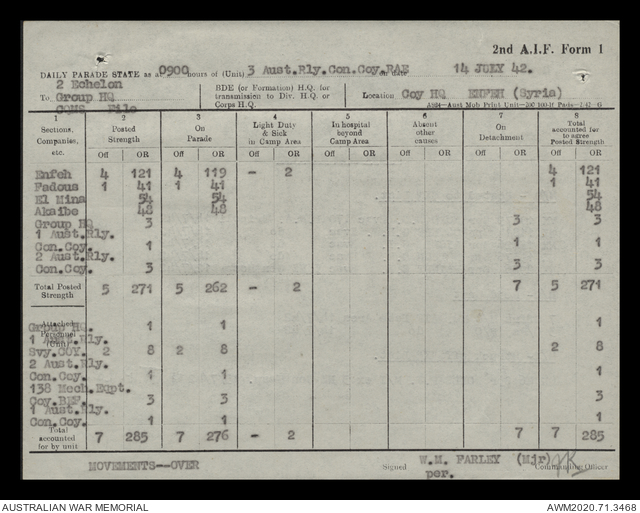 2nd A.I.F. Form 1
DAILY PARADE STATE as at 0900 hours of (Unit) 3 Aust.Rly.Con.Coy.RAE on date 14 JULY 42.
2 Echelon
To Group HQ
COMS File
BDE (or Formation) H.Q. for transmission to Div. H.Q. or Corps H.Q.
Location Coy HQ ENFEH (Syria)
1 2 3 4 5 6 7 8
Sections, Companies, etc. Posted Strength On Parade Light Duty & Sick in Camp Area In hospital beyond Camp Area Absent other causes On Detachment Total accounted for to agree Posted Strength
Off OR Off OR Off OR Off OR Off OR Off OR Off OR
Enfeh 4 121 4 119 - 2 4 121
Fadous 1 41 1 41 1 41
El Mina 54 54 54
Akaibe 48 48 48
Group HQ 3 3 3
1 Aust.Rly.
Con.Coy. 1 1 1
2 Aust.Rly.
Con.Coy. 3 3 3
Total Posted Strength 5 271 5 262 - 2 7 5 271
Attached Personnel (Unit)
Group HQ. 1 1 1
1 Aust.Rly.
Svy.COY. 2 8 2 8 2 8
2 Aust.Rly.
Con.Coy. 1 1 1
138 Mech.Eqpt.
Coy.RE. 3 3 3
1 Aust.Rly.
Con.Coy. 1 1 1
Total accounted for by unit 7 285 7 276 - 2 7 7 285
MOVEMENTS--OVER
Signed W.M. FARLEY (Mjr)
Commanding Officer
per.
AUSTRALIAN WAR MEMORIAL
AWM2020.71.3468